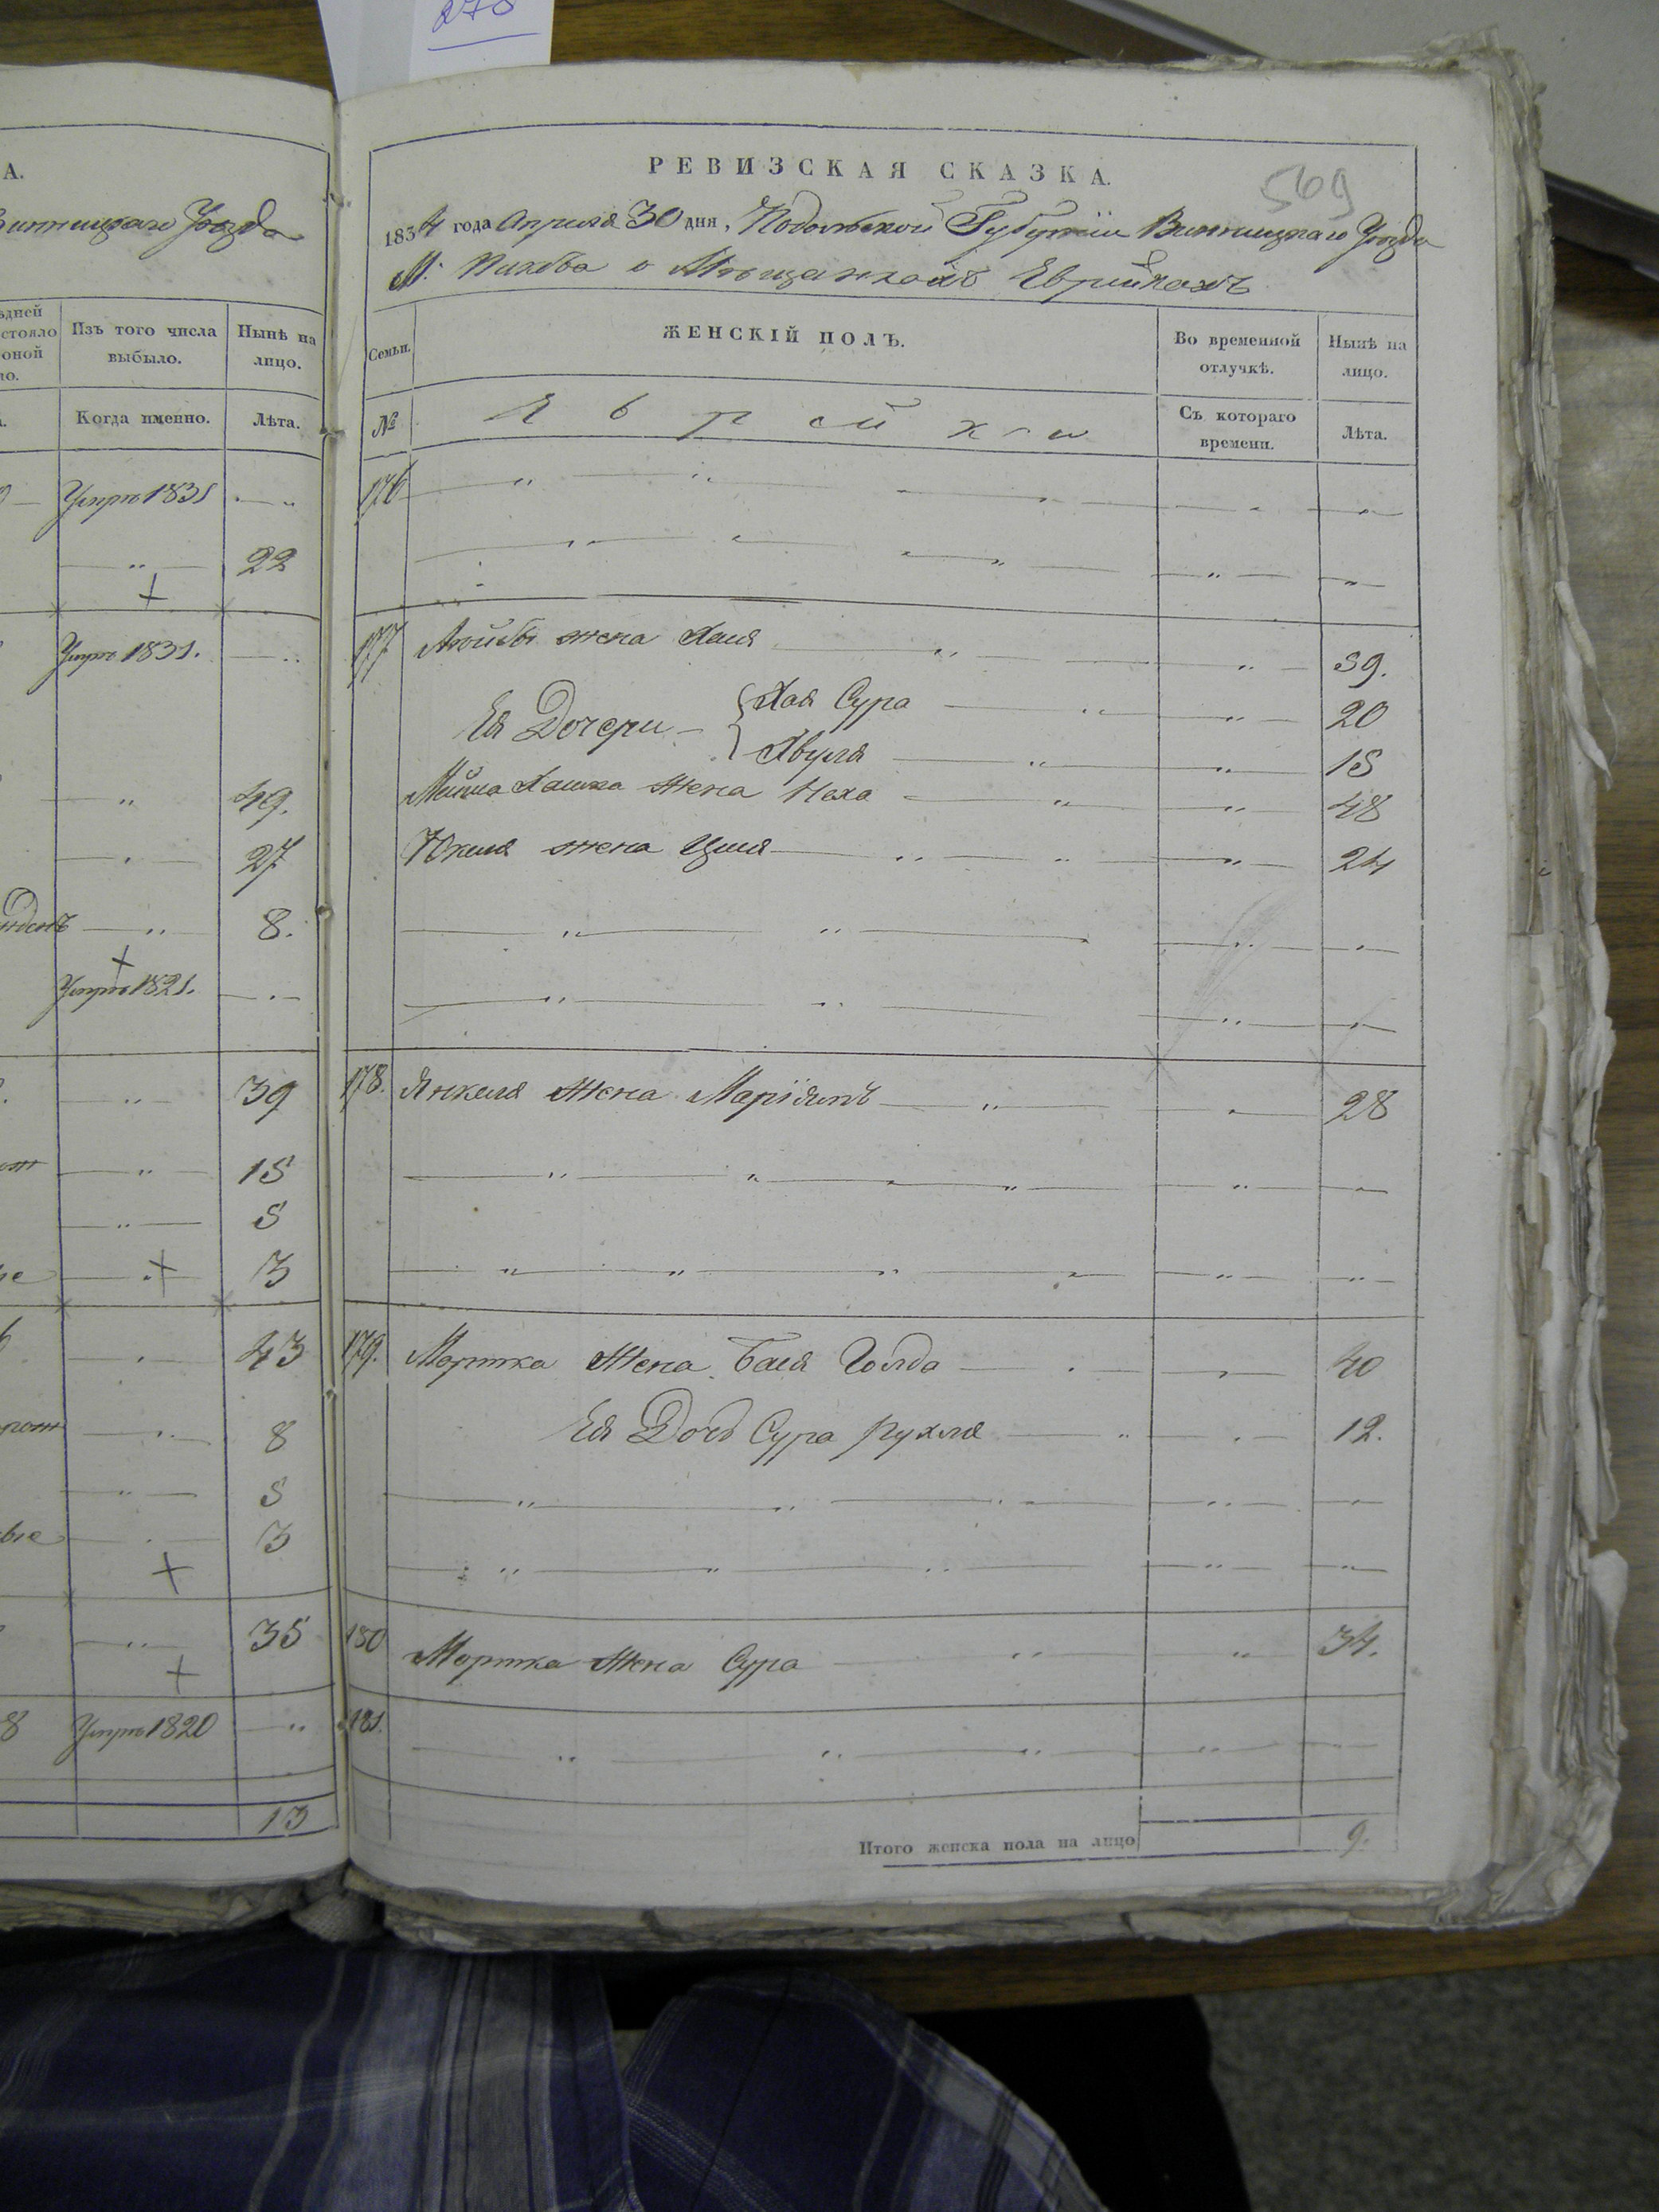 278
А.
Винницкаго Уѣзда
Изъ того числа выбыло.
Ныnѣ на лицо.
Когда именно.
Лѣта.
Умре 1831
22
Умре 1831.
49.
27
8.
Умре 1821.
39
15
5
3
43
8
5
3
35
8 Умре 1820
13
569
РЕВИЗСКАЯ СКАЗКА.
1834 года Апреля 30 дня, Подольской Губерніи Винницкаго Уѣзда
М: Пикова о Мѣщанкахъ Еврейкахъ
Семьи.
ЖЕНСКІЙ ПОЛЪ.
Во временной отлучкѣ.
Нынѣ на лицо.
№
Еврейки
Съ котораго времени.
Лѣта.
176
177 жена Хая 39.
Ея Дочери Хая Сура 20
Хвуля 15
жена Неха 48
Юкеля жена Циля 24
178. Янкеля жена Маріямъ 28
179. Мортка жена Бася Голда 40
Ея Дочь Сура Рухля 12.
180 Мортка жена Сура 34.
181.
Итого женска пола на лицо 9.